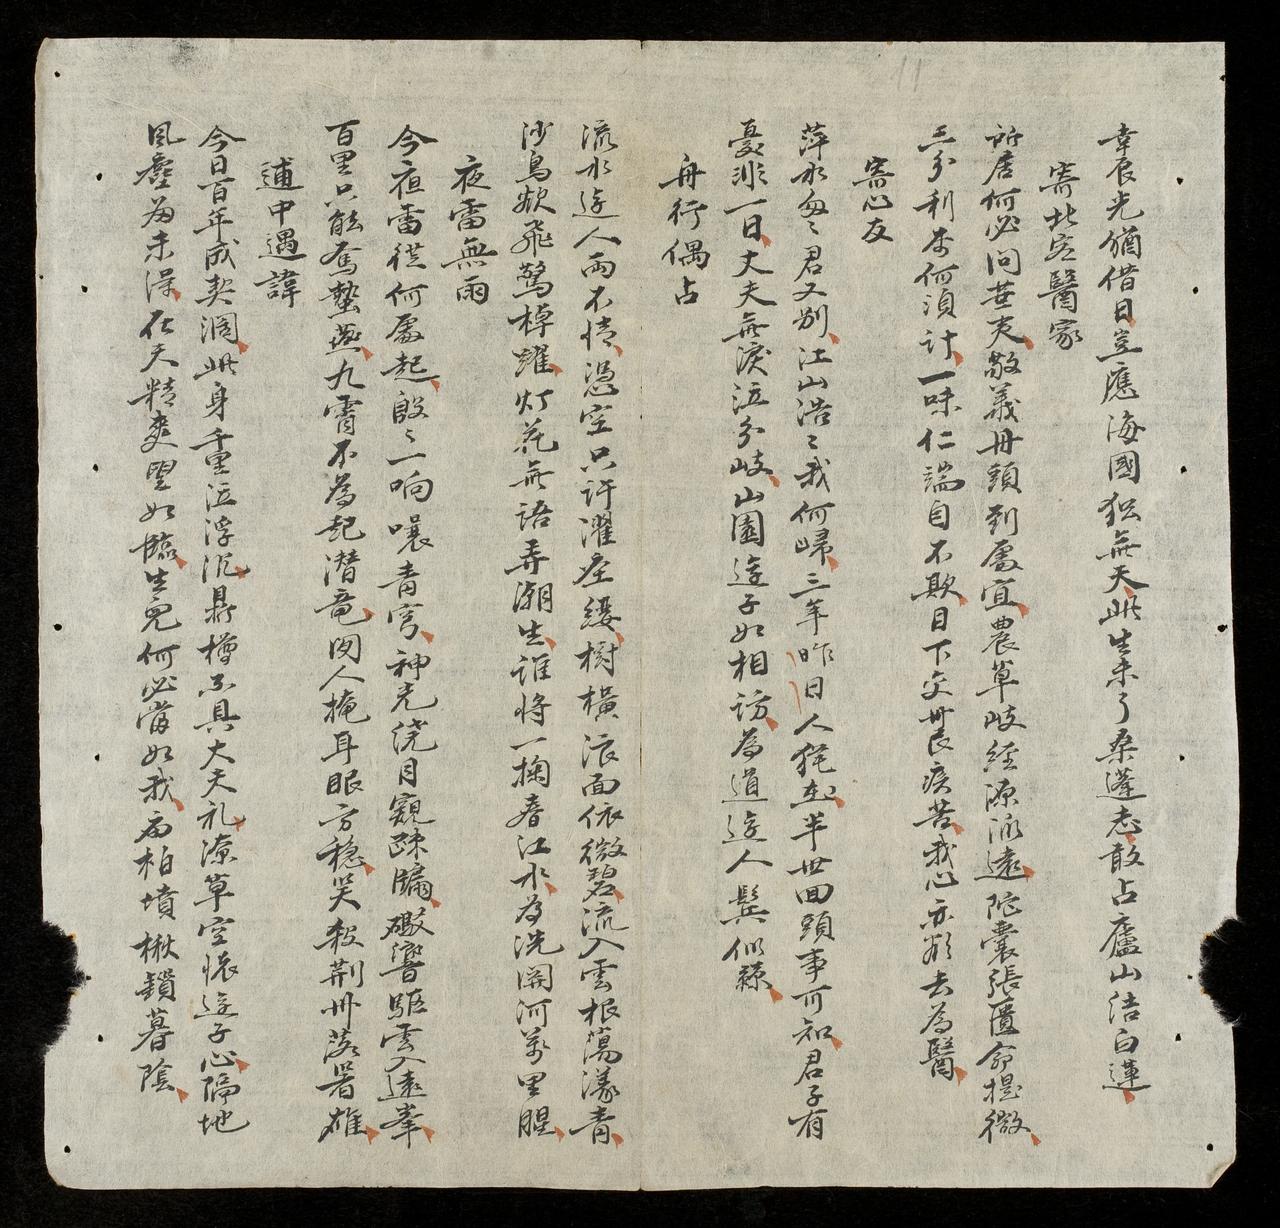 韋辰光猶借日豈應海國独無天此生未了桑蓬志敢占廬山結白蓮
寄北客醫家
所居何必問華夷敬義毋頭到處宜農草岐經源泒遠陀囊張匱命提微
三分利本何須計一味仁端自不欺目下交卅民疾苦我心亦欲去為醫
寄心友
萍水匆〻君又别江山浩〻我何歸三年昨日人猶在半世回頭事可知君子有
憂非一日丈夫無淚泣分岐山園遊子如相訪為道遊人鬂似絲
舟行偶占
流水遊人両不情憑空只許濯塵纓樹橫浪面依微碧流入雲根蕩漾青
沙鳥欲飛驚棹躍灯花無語弄潮生誰将一掬春江水為洗関河萬里腥
夜雷無雨
今夜雷従何處起殷〻一响嚷青穹神光浇月窺疎牖礮響駈雲入遠峯
百里只能奮蟄燕九霄不為起潛竜閔人掩耳眠方穏笑殺荆州落署雄
逋中遇諱
今日百年成契濶此身千里泣浮沉鼎樽不具大夫礼潦草空懐遊子心隔地
風塵為未得在天精爽望如臨生兒何必當如我両柏墳楸鎖暮陰